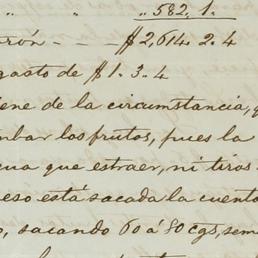 " " " 582,, 1.
rón, - - $2,614.. 2.. 4
gasto de $1.. 3.. 4
iene de la circunstancia, q
mbar los frutos, pues la
ua que estraer, ni tiros
eso está sacada la cuenta
o, sacando 60 á 80 cgs, sem